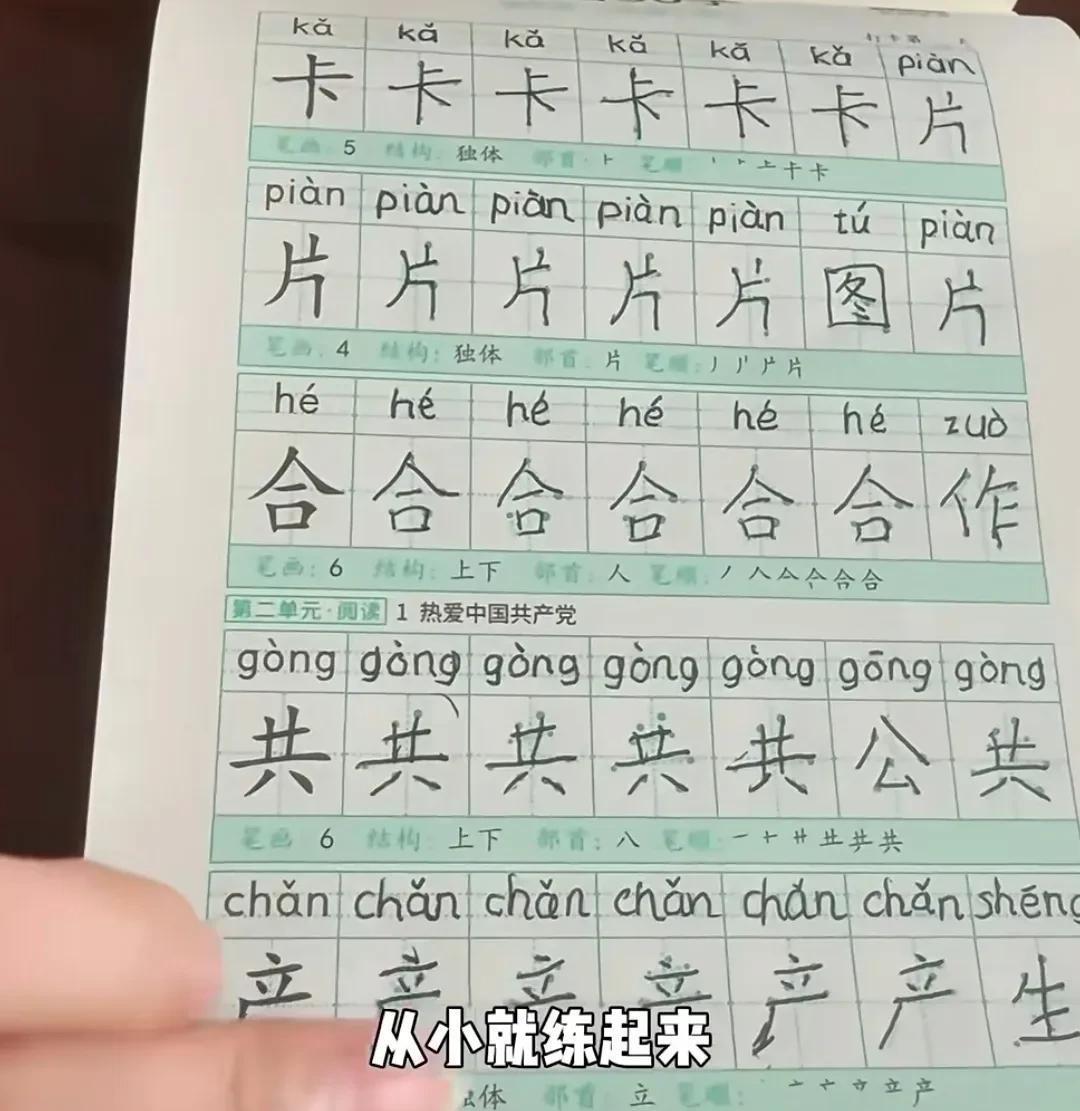 kǎ kǎ kǎ kǎ kǎ kǎ piàn
卡 卡 卡 卡 卡 卡 片
笔画: 5 结构: 独体 部首: ⺊ 笔顺: 丨 ⺊ 上 卡
piàn piàn piàn piàn piàn tú piàn
片 片 片 片 片 图 片
笔画: 4 结构: 独体 部首: 片 笔顺: 丿 片
hé hé hé hé hé hé zuò
合 合 合 合 合 合 作
笔画: 6 结构: 上下 部首: 人 笔顺: 丿 人 亼 合 合
第二单元·阅读 1 热爱中国共产党
gòng gòng gòng gòng gòng gōng gòng
共 共 共 共 共 公 共
笔画 6 结构: 上下 部首: 八 笔顺: 一 十 艹 龷 共
chǎn chǎn chǎn chǎn chǎn chǎn shēng
产 产 产 产 产 产 生
从小就练起来
体 部首: 立 笔顺: 亠 立 产